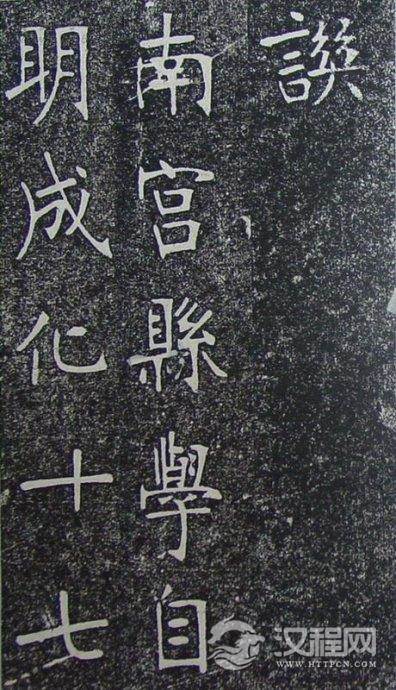 譔
南宫縣學自
明成化十七
汉程网
WWW.HTTPCN.COM